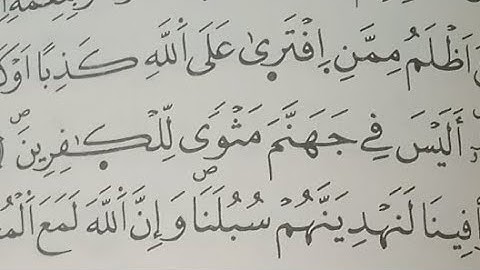 اَظْلَمُ مِمَّنِ افْتَرٰى عَلَى اللّٰهِ كَذِبًا اَوْ
اَلَيْسَ فِيْ جَهَنَّمَ مَثْوًى لِّلْكٰفِرِيْنَ
فِيْنَا لَنَهْدِيَنَّهُمْ سُبُلَنَا وَاِنَّ اللّٰهَ لَمَعَ